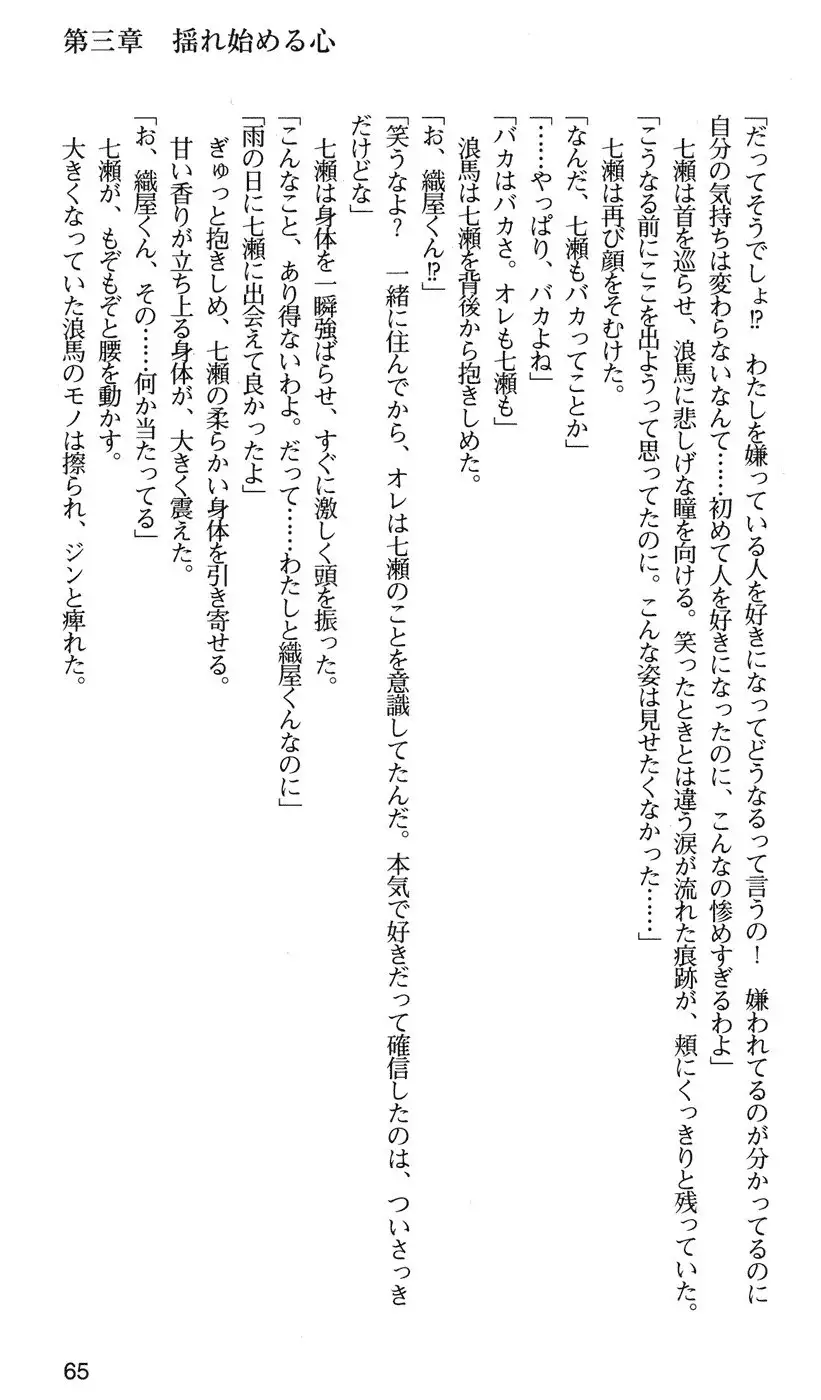 第三章　揺れ始める心
「だってそうでしょ!?　わたしを嫌っている人を好きになってどうなるって言うの！　嫌われてるのが分かってるのに
自分の気持ちは変わらないなんて……初めて人を好きになったのに、こんなの惨めすぎるわよ」
　七瀬は首を巡らせ、浪馬に悲しげな瞳を向ける。笑ったときとは違う涙が流れた痕跡が、頬にくっきりと残っていた。
「こうなる前にここを出ようって思ってたのに。こんな姿は見せたくなかった……」
　七瀬は再び顔をそむけた。
「なんだ、七瀬もバカってことか」
「……やっぱり、バカよね」
「バカはバカさ。オレも七瀬も」
　浪馬は七瀬を背後から抱きしめた。
「お、織屋くん!?」
「笑うなよ？　一緒に住んでから、オレは七瀬のことを意識してたんだ。本気で好きだって確信したのは、ついさっき
だけどな」
　七瀬は身体を一瞬強ばらせ、すぐに激しく頭を振った。
「こんなこと、あり得ないわよ。だって……わたしと織屋くんなのに」
「雨の日に七瀬に出会えて良かったよ」
　ぎゅっと抱きしめ、七瀬の柔らかい身体を引き寄せる。
　甘い香りが立ち上る身体が、大きく震えた。
「お、織屋くん、その……何か当たってる」
　七瀬が、もぞもぞと腰を動かす。
　大きくなっていた浪馬のモノは擦られ、ジンと痺れた。
65